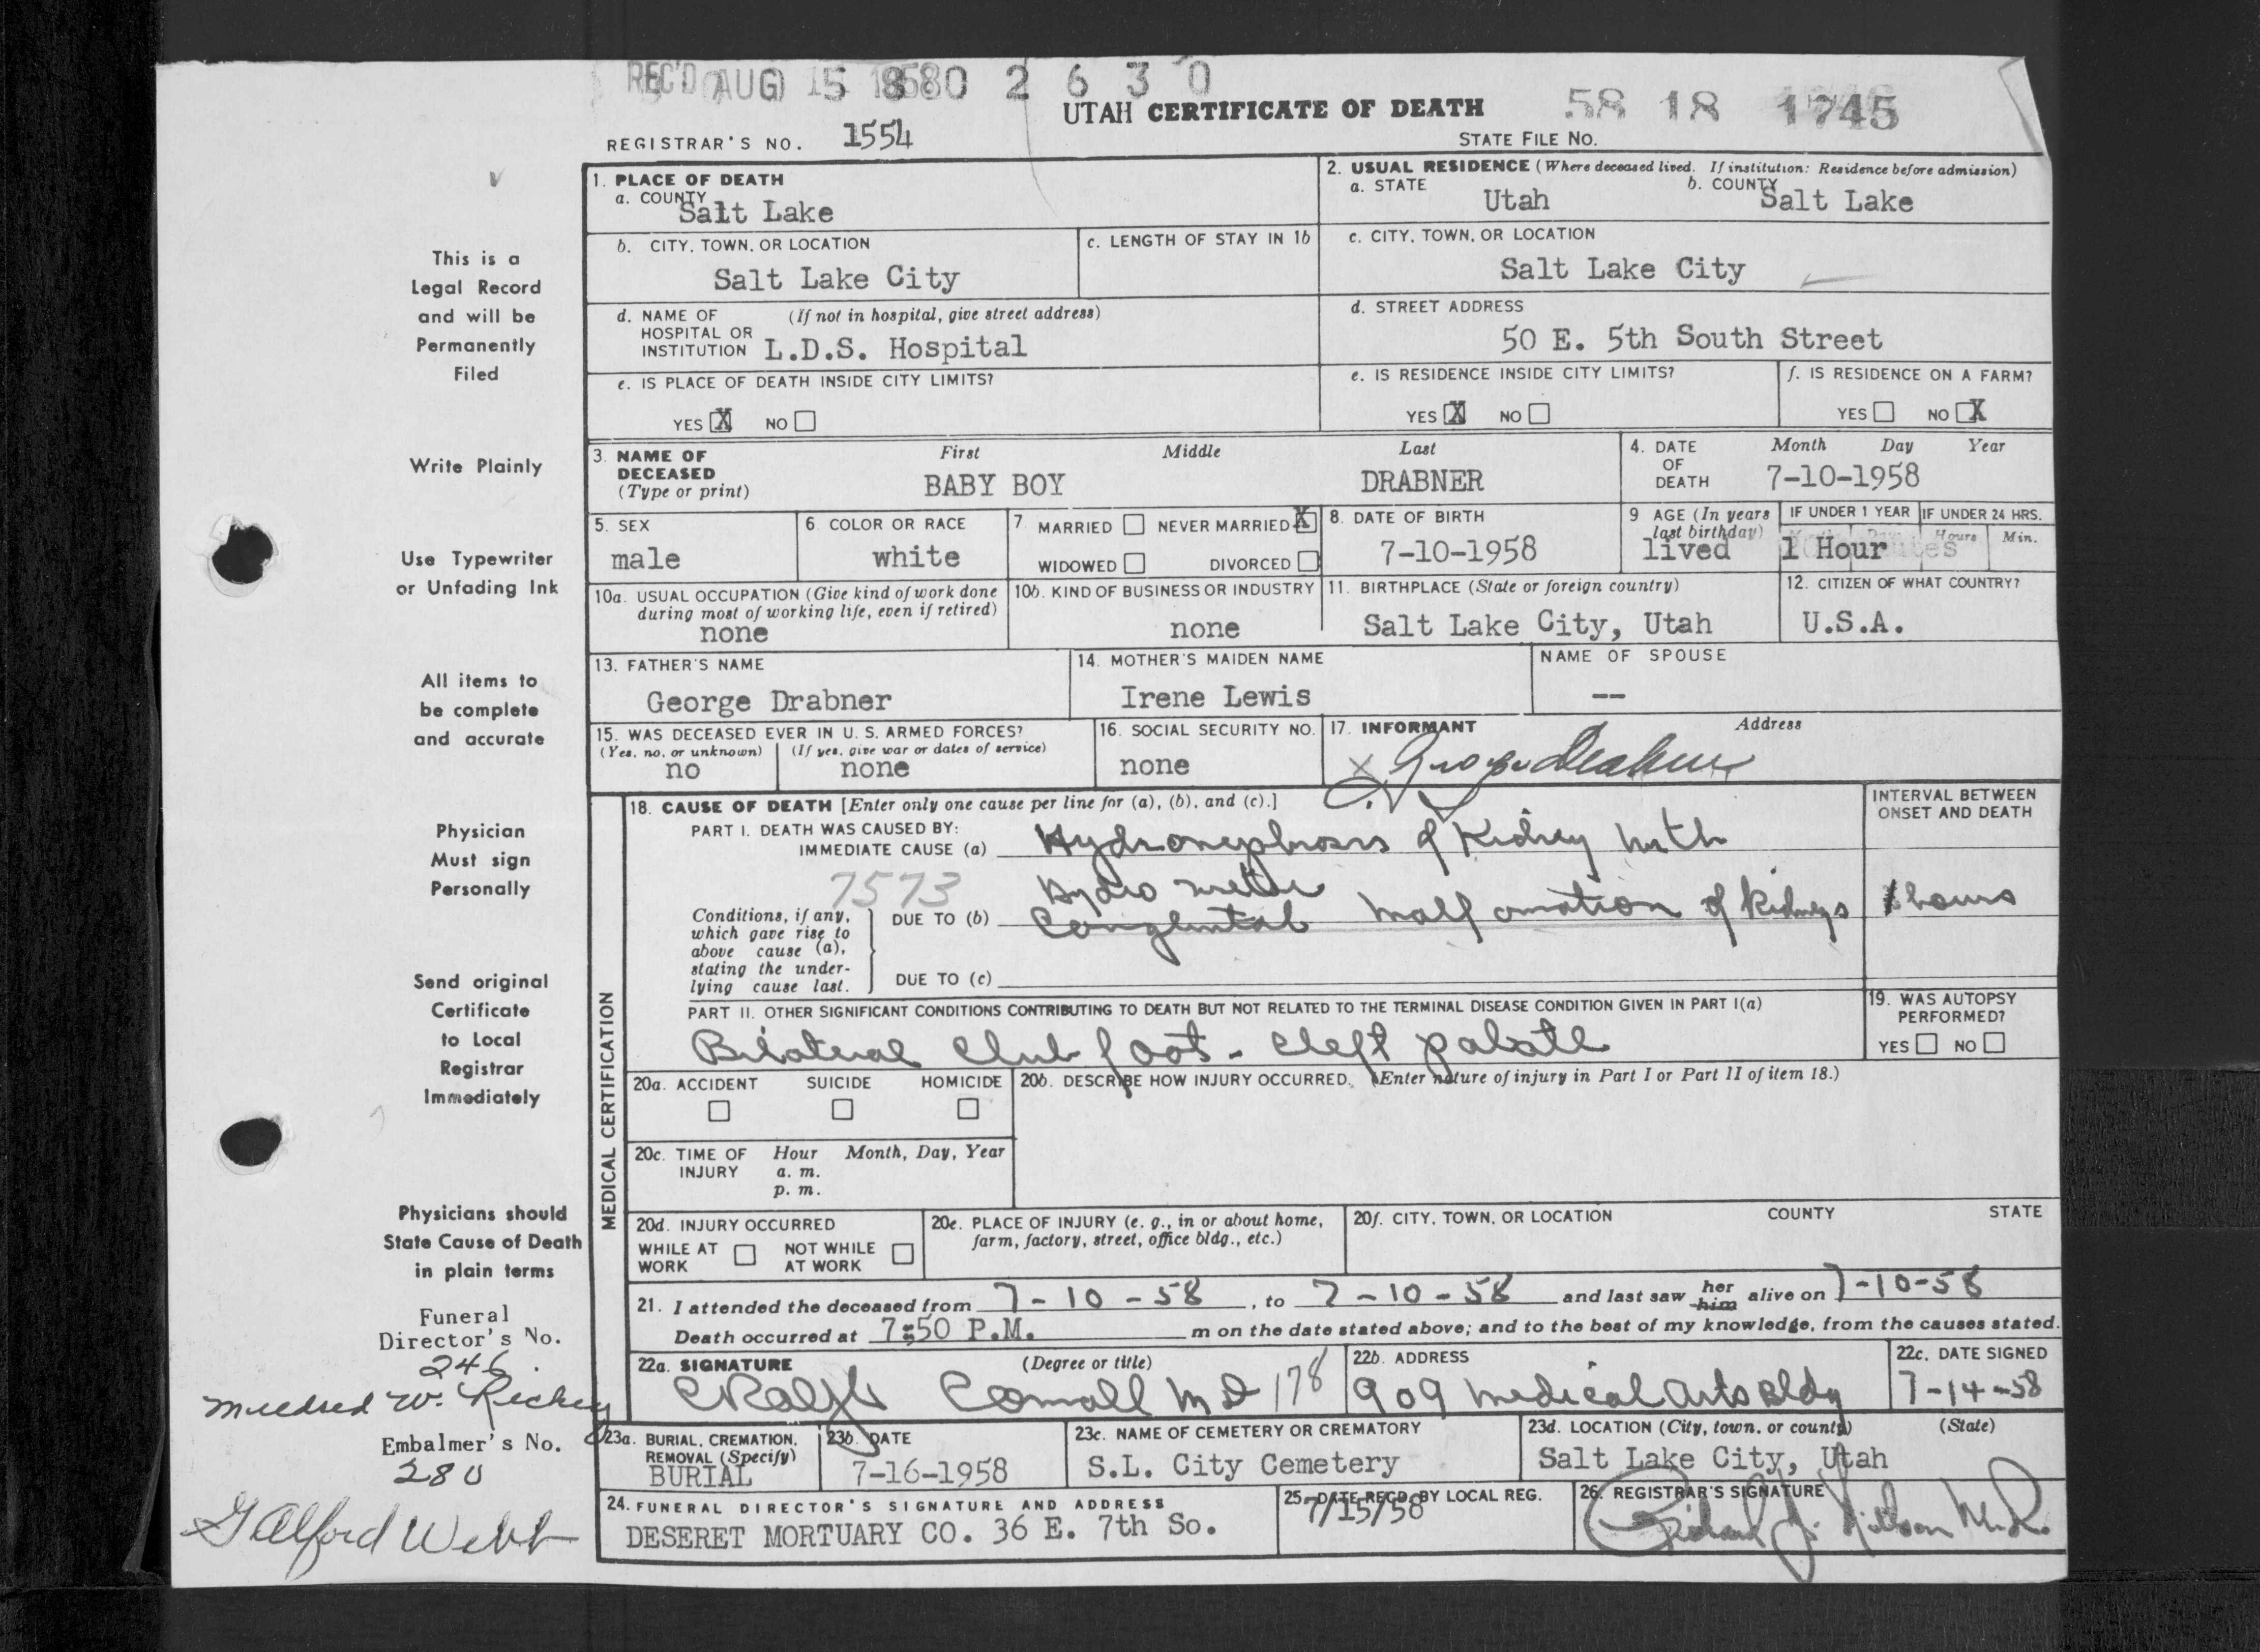 REC'D AUG 15 1958 0 2 6 3 0
UTAH CERTIFICATE OF DEATH
58 18 1745
REGISTRAR'S NO. 1554
STATE FILE NO.
1. PLACE OF DEATH
a. COUNTY
Salt Lake
2. USUAL RESIDENCE (Where deceased lived. If institution: Residence before admission)
a. STATE
Utah
b. COUNTY
Salt Lake
b. CITY, TOWN, OR LOCATION
Salt Lake City
c. LENGTH OF STAY IN 1b
c. CITY, TOWN, OR LOCATION
Salt Lake City
d. NAME OF HOSPITAL OR INSTITUTION
(If not in hospital, give street address)
L.D.S. Hospital
d. STREET ADDRESS
50 E. 5th South Street
e. IS PLACE OF DEATH INSIDE CITY LIMITS?
YES X NO
e. IS RESIDENCE INSIDE CITY LIMITS?
YES X NO
f. IS RESIDENCE ON A FARM?
YES NO X
3. NAME OF DECEASED
(Type or print)
First Middle Last
BABY BOY DRABNER
4. DATE OF DEATH
Month Day Year
7-10-1958
5. SEX
male
6. COLOR OR RACE
white
7. MARRIED NEVER MARRIED X
WIDOWED DIVORCED
8. DATE OF BIRTH
7-10-1958
9 AGE (In years last birthday)
lived
IF UNDER 1 YEAR IF UNDER 24 HRS.
Hours Min.
1 Hour
10a. USUAL OCCUPATION (Give kind of work done during most of working life, even if retired)
none
10b. KIND OF BUSINESS OR INDUSTRY
none
11. BIRTHPLACE (State or foreign country)
Salt Lake City, Utah
12. CITIZEN OF WHAT COUNTRY?
U.S.A.
13. FATHER'S NAME
George Drabner
14. MOTHER'S MAIDEN NAME
Irene Lewis
NAME OF SPOUSE
--
15. WAS DECEASED EVER IN U. S. ARMED FORCES?
(Yes, no, or unknown) (If yes, give war or dates of service)
no none
16. SOCIAL SECURITY NO.
none
17. INFORMANT Address
X George Drabner
MEDICAL CERTIFICATION
18. CAUSE OF DEATH [Enter only one cause per line for (a), (b), and (c).]
INTERVAL BETWEEN ONSET AND DEATH
PART I. DEATH WAS CAUSED BY:
IMMEDIATE CAUSE (a) Hydronephrosis of Kidney with
7573 Hydro
Conditions, if any, which gave rise to above cause (a), stating the underlying cause last.
DUE TO (b) Congenital malformation of kidneys
1 hours
DUE TO (c)
PART II. OTHER SIGNIFICANT CONDITIONS CONTRIBUTING TO DEATH BUT NOT RELATED TO THE TERMINAL DISEASE CONDITION GIVEN IN PART I(a)
Bilateral club foot - cleft palate
19. WAS AUTOPSY PERFORMED?
YES NO
20a. ACCIDENT SUICIDE HOMICIDE
20b. DESCRIBE HOW INJURY OCCURRED. (Enter nature of injury in Part I or Part II of item 18.)
20c. TIME OF INJURY
Hour Month, Day, Year
a. m.
p. m.
20d. INJURY OCCURRED
WHILE AT WORK NOT WHILE AT WORK
20e. PLACE OF INJURY (e. g., in or about home, farm, factory, street, office bldg., etc.)
20f. CITY, TOWN, OR LOCATION COUNTY STATE
21. I attended the deceased from 7-10-58, to 7-10-58 and last saw her him alive on 7-10-58
Death occurred at 7:50 P.M. m on the date stated above; and to the best of my knowledge, from the causes stated.
22a. SIGNATURE (Degree or title)
Cornall MD 178
22b. ADDRESS
909 Medical Arts Bldg
22c. DATE SIGNED
7-14-58
23a. BURIAL, CREMATION, REMOVAL (Specify)
BURIAL
23b. DATE
7-16-1958
23c. NAME OF CEMETERY OR CREMATORY
S.L. City Cemetery
23d. LOCATION (City, town, or county) (State)
Salt Lake City, Utah
24. FUNERAL DIRECTOR'S SIGNATURE AND ADDRESS
DESERET MORTUARY CO. 36 E. 7th So.
25. DATE RECD. BY LOCAL REG.
7/15/58
26. REGISTRAR'S SIGNATURE
This is a
Legal Record
and will be
Permanently
Filed
Write Plainly
Use Typewriter
or Unfading Ink
All items to
be complete
and accurate
Physician
Must sign
Personally
Send original
Certificate
to Local
Registrar
Immediately
Physicians should
State Cause of Death
in plain terms
Funeral
Director's No.
246
Mildred W. Rickey
Embalmer's No.
280
Galford Webb